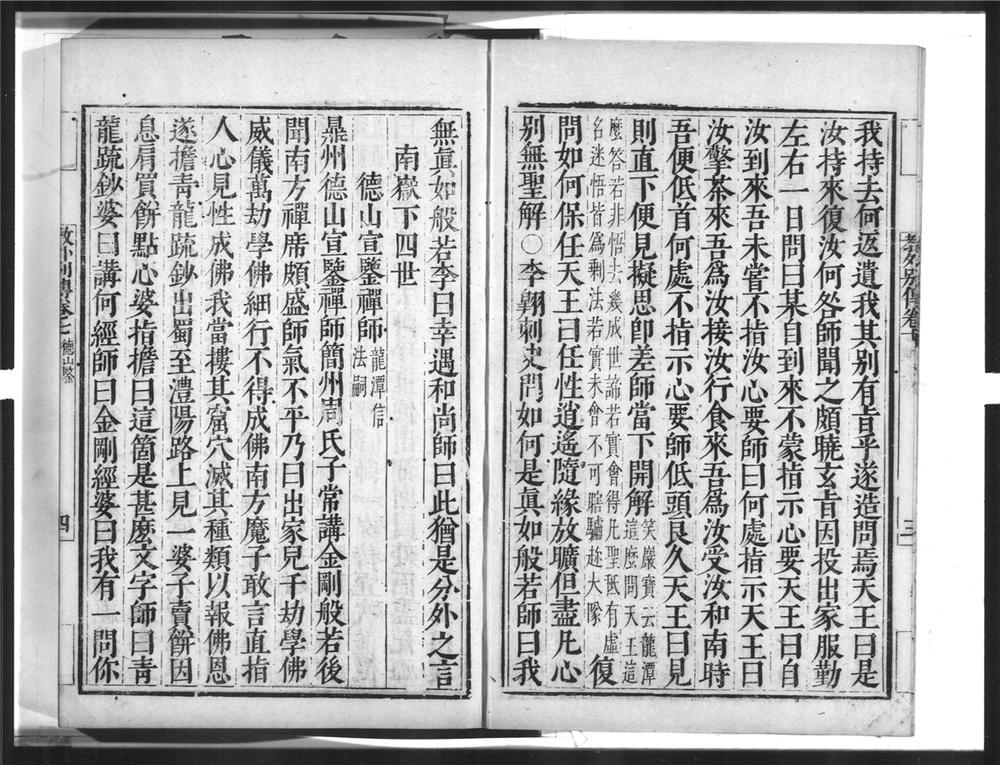 我持去何返遺我其别有旨乎遂造問焉天王曰是
汝持來復汝何咎師聞之頗曉玄旨因投出家服勤
左右一日問曰某自到來不蒙指示心要天王曰自
汝到來吾未嘗不指汝心要師曰何處指示天王曰
汝擎茶來吾爲汝接汝行食來吾爲汝受汝和南時
吾便低首何處不指示心要師低頭良久天王曰見
則直下便見擬思卽差師當下開解笑巖寶云龍潭這麽問天王這復
麽答若非悟去幾成世諦若實會得凡聖眂有虛
名迷悟皆爲剩法若實未會不可瞎驢趂大隊
問如何保任天王曰任性逍遙隨緣放曠但盡凡心
别無聖解〇李翺刺史問如何是眞如般若師曰我
教外别傳卷七
三
無眞如般若李曰幸遇和尚師曰此猶是分外之言
南嶽下四世
德山宣鑒禪師龍潭信法嗣
鼎州德山宣鑒禪師簡州周氏子常講金剛般若後
聞南方禪席頗盛師氣不平乃曰出家兒千劫學佛
威儀萬劫學佛細行不得成佛南方魔子敢言直指
人心見性成佛我當摟其窟穴滅其種類以報佛恩
遂擔青龍疏鈔出蜀至澧陽路上見一婆子賣餅因
息肩買餅點心婆指擔曰這箇是甚麽文字師曰靑
龍疏鈔婆曰講何經師曰金剛經婆曰我有一問你
教外别傳卷七
德山鑒
四